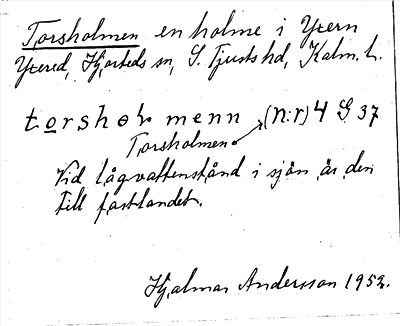 Torsholmen en holme i Ytern
Ytered, Hjorteds sn, S. Tjusts hd, Kalm. l.
torshol menn (n:r) 4 G 37
Torsholmen
Vid lågvattenstånd i sjön är den
till fastlandet.
Hjalmar Andersson 1952.